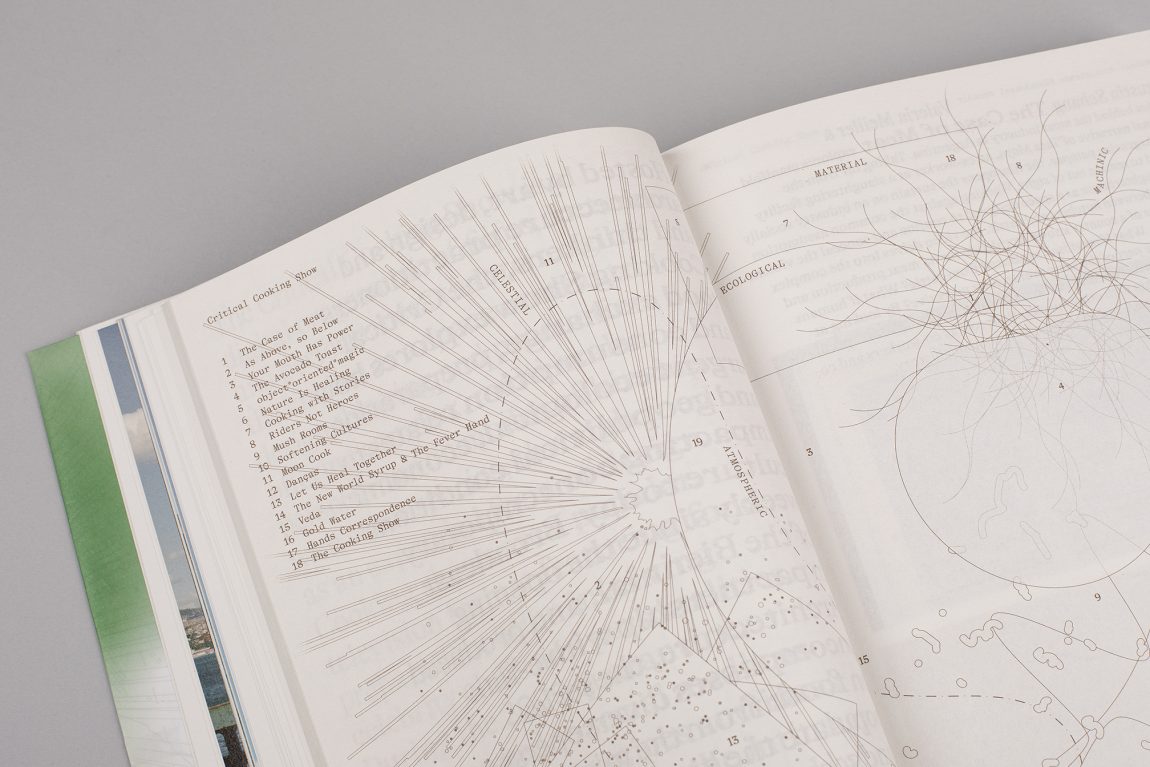 Critical Cooking Show
1 The Case of Meat
2 As Above, so Below
3 Your Mouth Has Power
4 The Avocado Toast
5 object"oriented"magic
6 Nature Is Healing
7 Cooking with Stories
8 Riders Not Heroes
9 Mush Rooms
10 Softening Cultures
11 Moon Cook
12 Danças
13 Let Us Heal Together
14 The New World Syrup & The Fever Hand
15 Veda
16 Gold Water
17 Hands Correspondence
18 The Cooking Show
CELESTIAL
11
5
19
ATMOSPHERIC
2
13
MATERIAL
18
8
MACHINIC
7
ECOLOGICAL
1
4
3
9
15